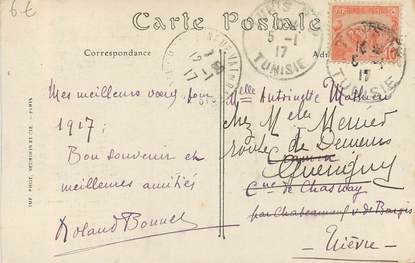 6€
Carte Postale
Correspondance
5-1
17
TUNISIE
5-1
17
TUNISIE
Mes meilleurs vœux pour
1917;
Bon souvenir et
meilleures amitiés
Roland Bonnet
Melle Antoinette Mathieu
chez M et Me
route de
Guérigny
Cne de Chasnay
par Chateauneuf v. de Bargis
Nièvre
IMP. PHOT. NEURDEIN ET CIE. - PARIS